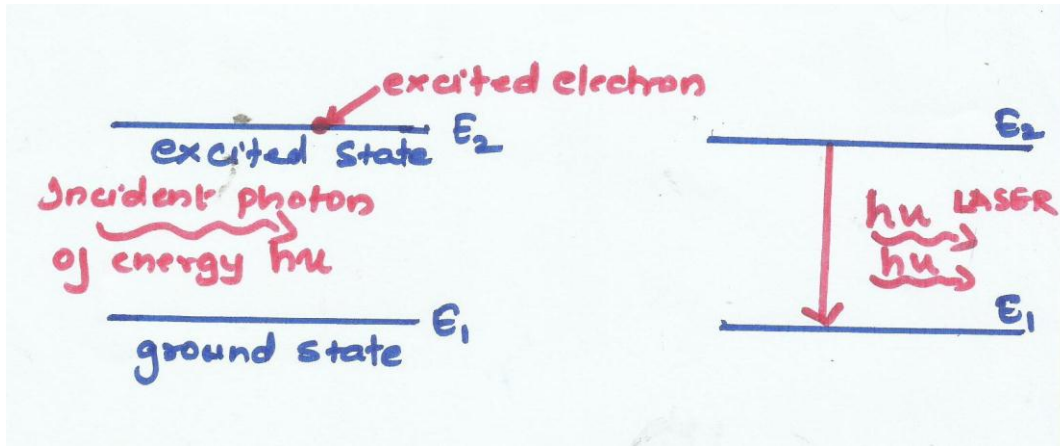 excited electron
E₂
excited state
Incident photon
of energy hu
E₁
ground state
E₂
hu LASER
hu
E₁